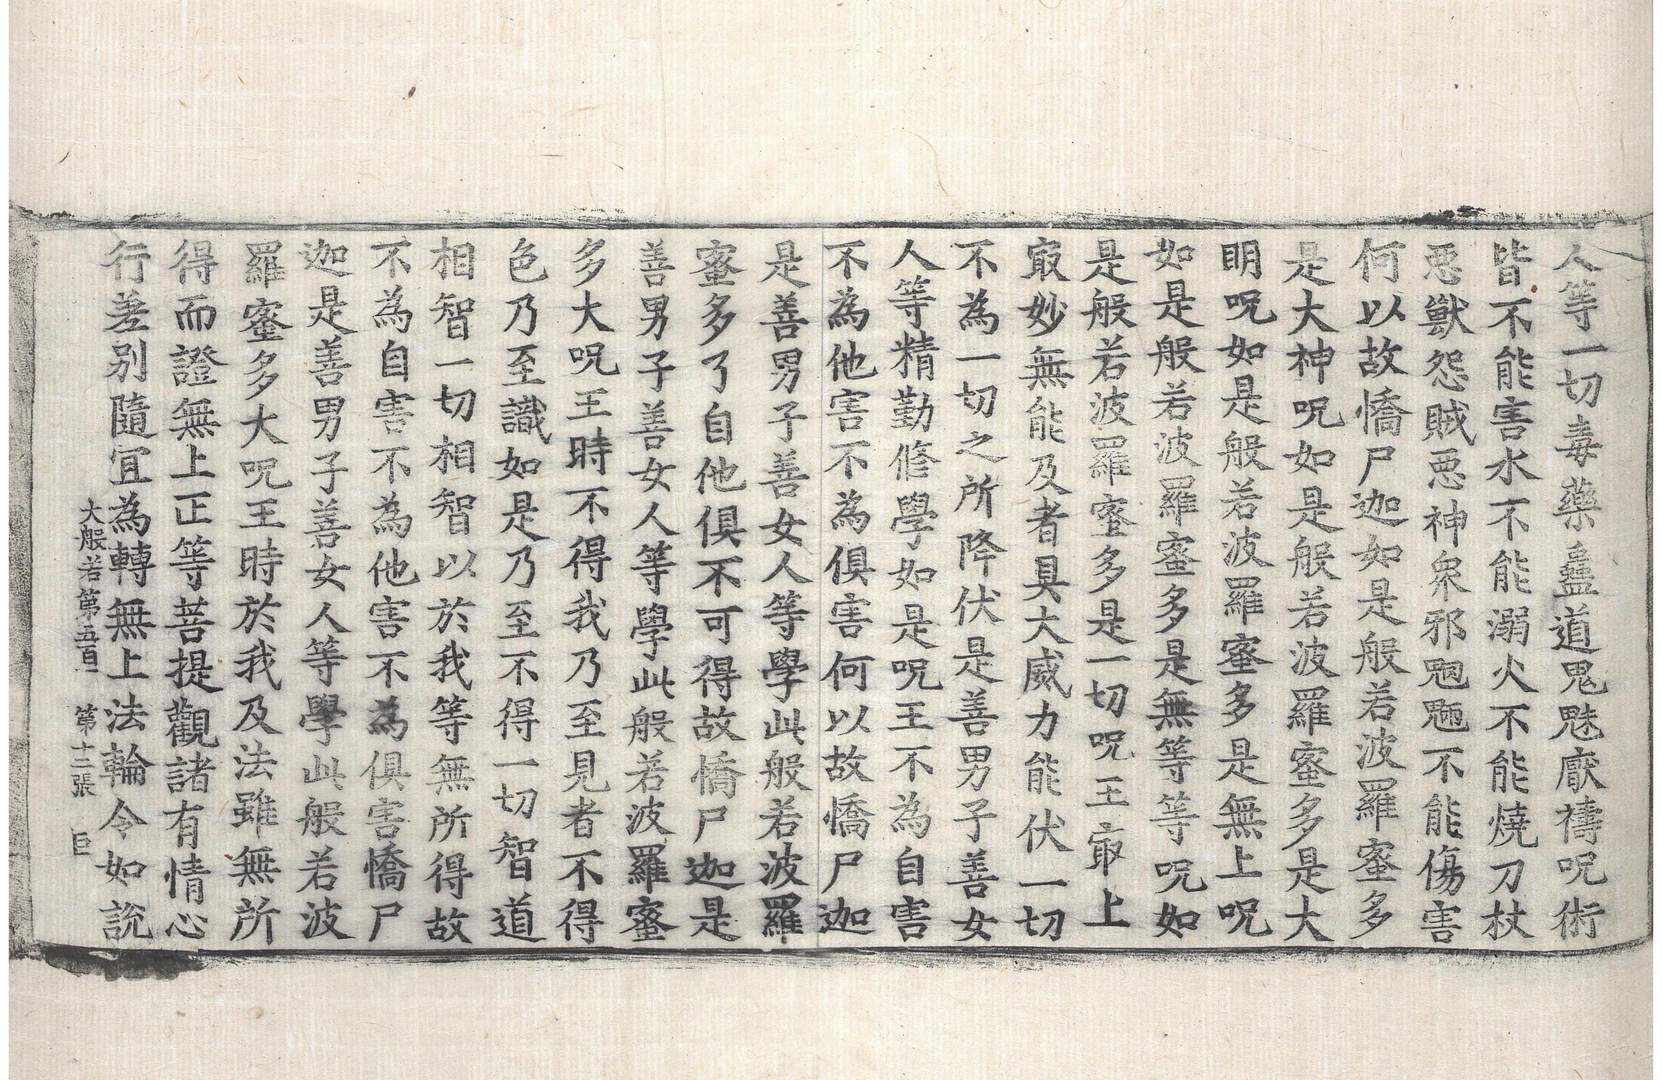 人等一切毒藥蠱道鬼魅厭禱呪術
皆不能害水不能溺火不能燒刀杖
惡獸怨賊惡神衆邪魍魎不能傷害
何以故憍尸迦如是般若波羅蜜多
是大神呪如是般若波羅蜜多是大
明呪如是般若波羅蜜多是無上呪
如是般若波羅蜜多是無等等呪如
是般若波羅蜜多是一切呪王㝡上
㝡妙無能及者具大威力能伏一切
不為一切之所降伏是善男子善女
人等精勤修學如是呪王不為自害
不為他害不為俱害何以故憍尸迦
是善男子善女人等學此般若波羅
蜜多了自他俱不可得故憍尸迦是
善男子善女人等學此般若波羅蜜
多大呪王時不得我乃至見者不得
色乃至識如是乃至不得一切智道
相智一切相智以於我等無所得故
不為自害不為他害不為俱害憍尸
迦是善男子善女人等學此般若波
羅蜜多大呪王時於我及法雖無所
得而證無上正等菩提觀諸有情心
行差别隨宜為轉無上法輪令如說
大般若第五百一 第十二張 巨